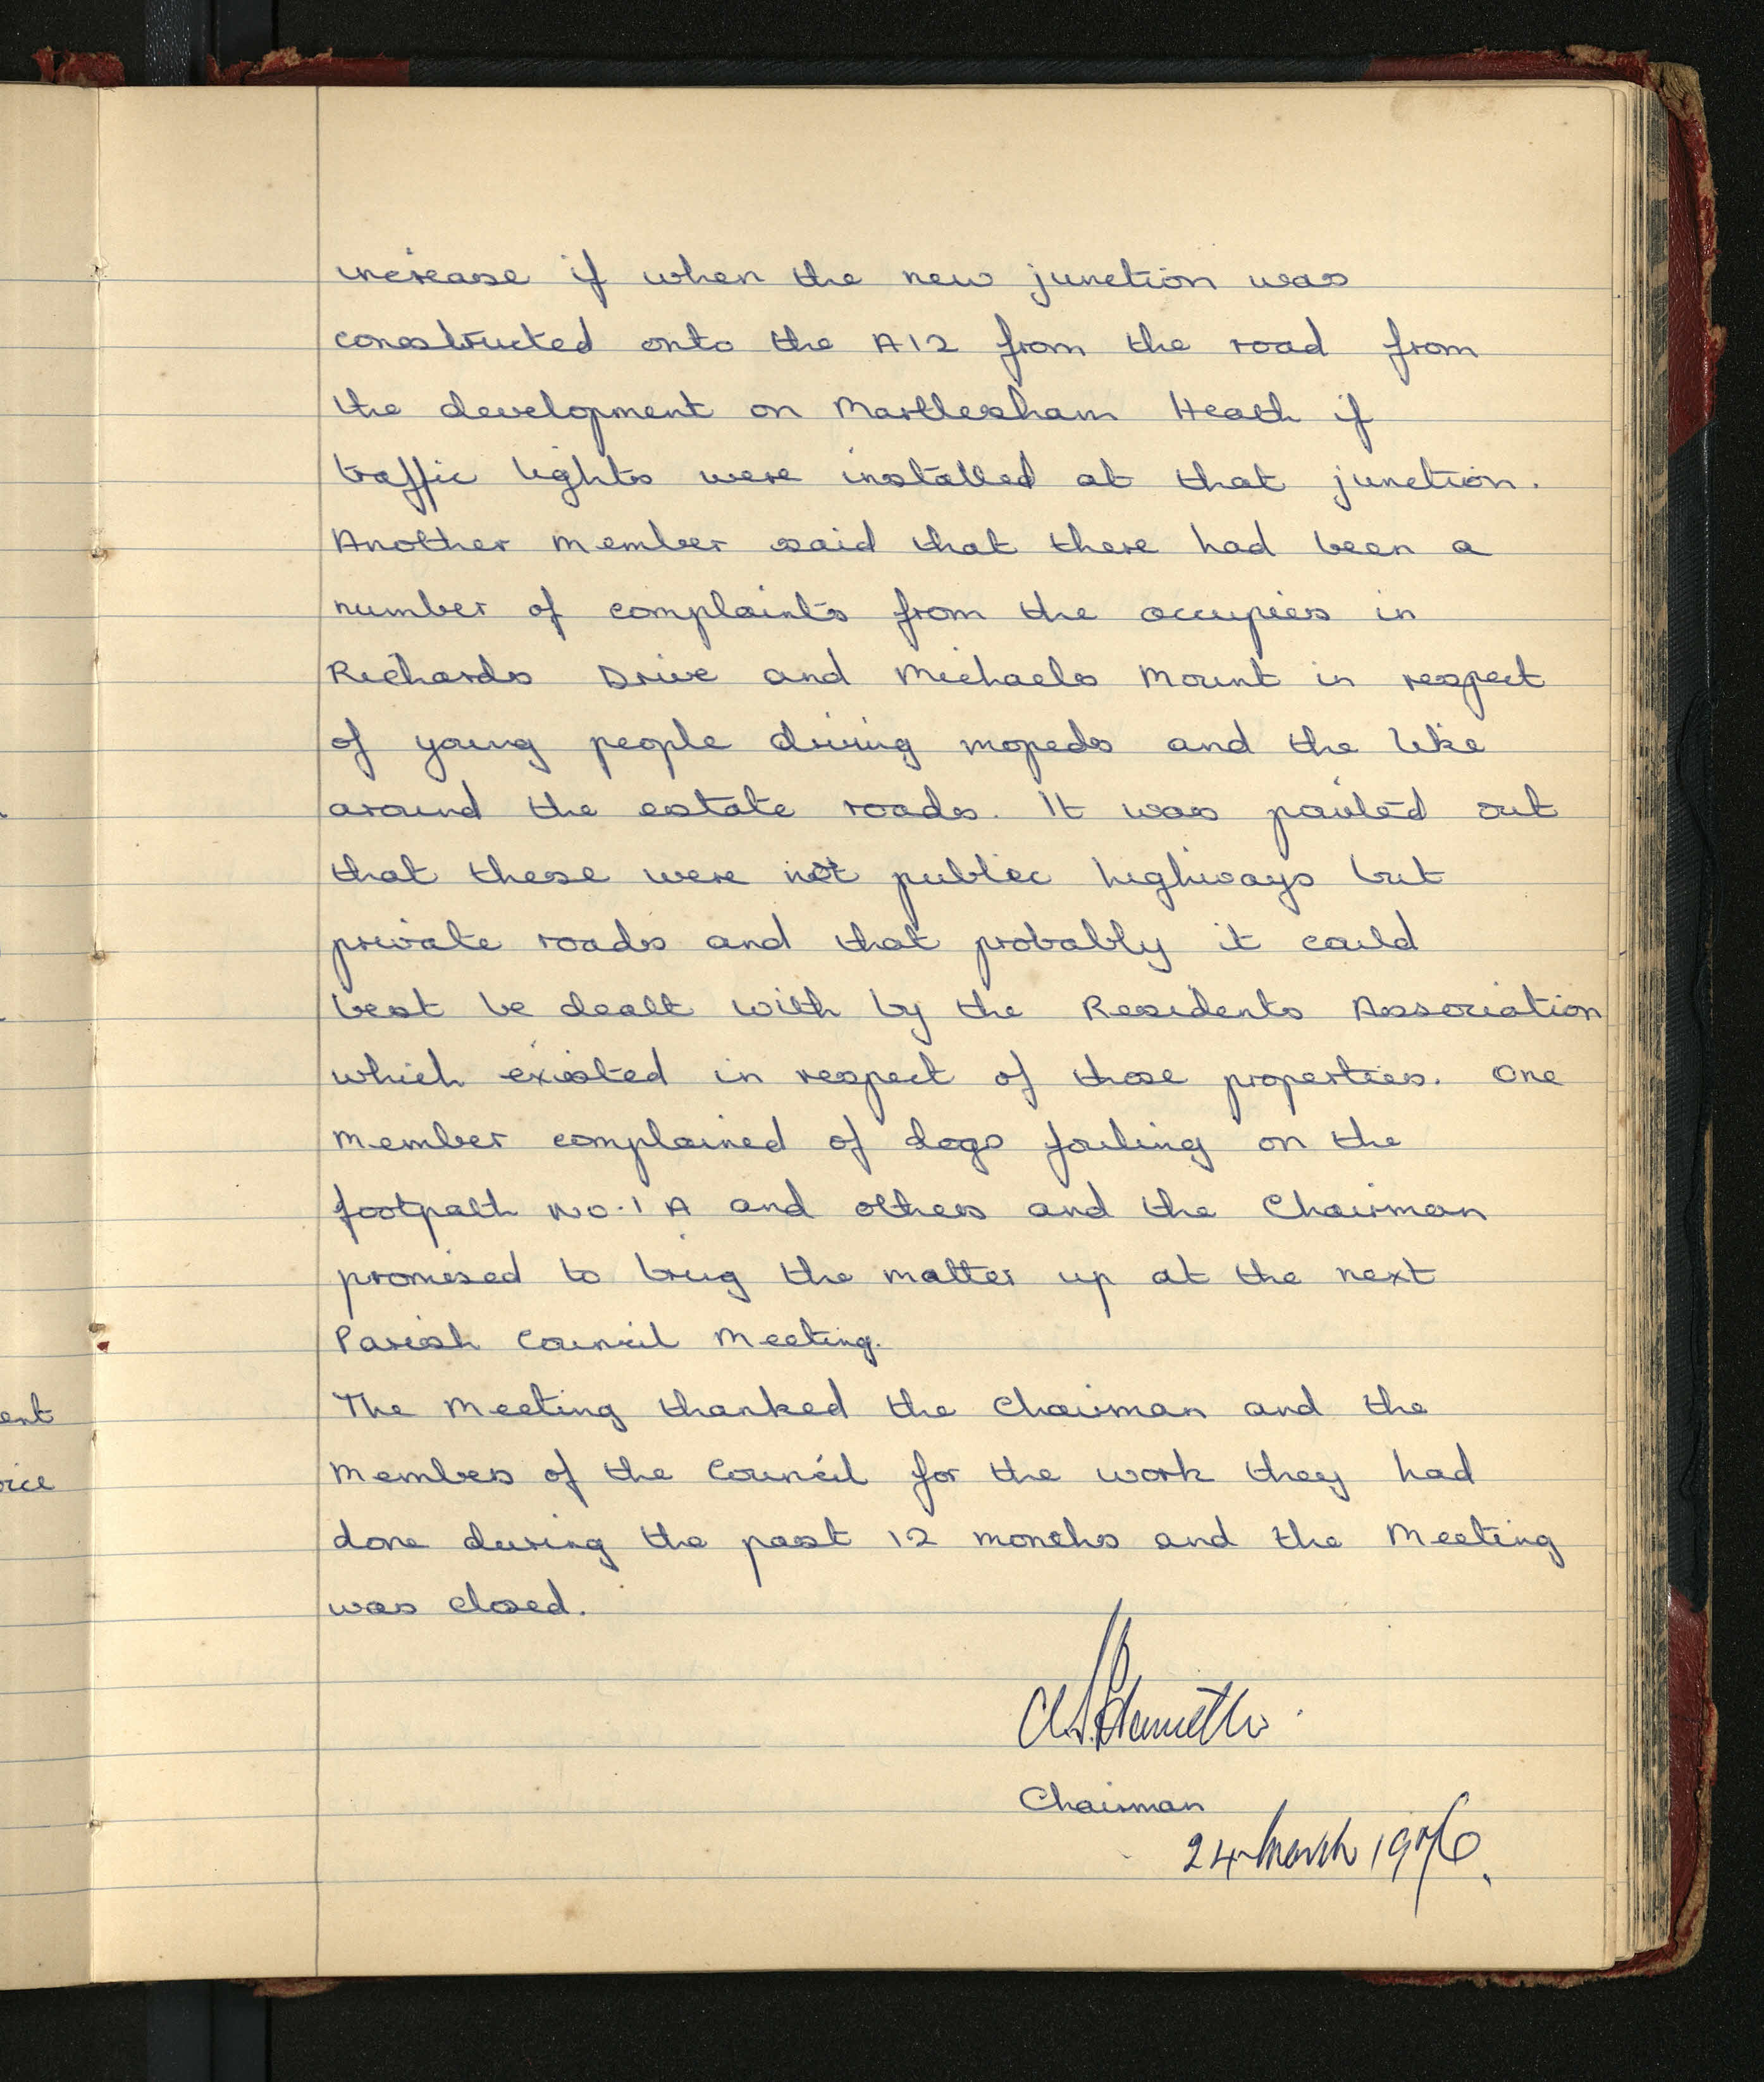 increase if when the new junction was
constructed onto the A12 from the road from
the development on Martlesham Heath if
traffic lights were installed at that junction.
Another member said that there had been a
number of complaints from the occupiers in
Richards Drive and Michaels Mount in respect
of young people driving mopeds and the like
around the estate roads. It was pointed out
that these were not public highways but
private roads and that probably it could
best be dealt with by the Residents Association
which existed in respect of those properties. One
member complained of dogs fouling on the
footpath No. 1 A and others and the Chairman
promised to bring the matter up at the next
Parish Council Meeting.
ent
The Meeting thanked the Chairman and the
Members of the Council for the work they had
done during the past 12 months and the Meeting
was closed.
Chairman
24 March 1976.